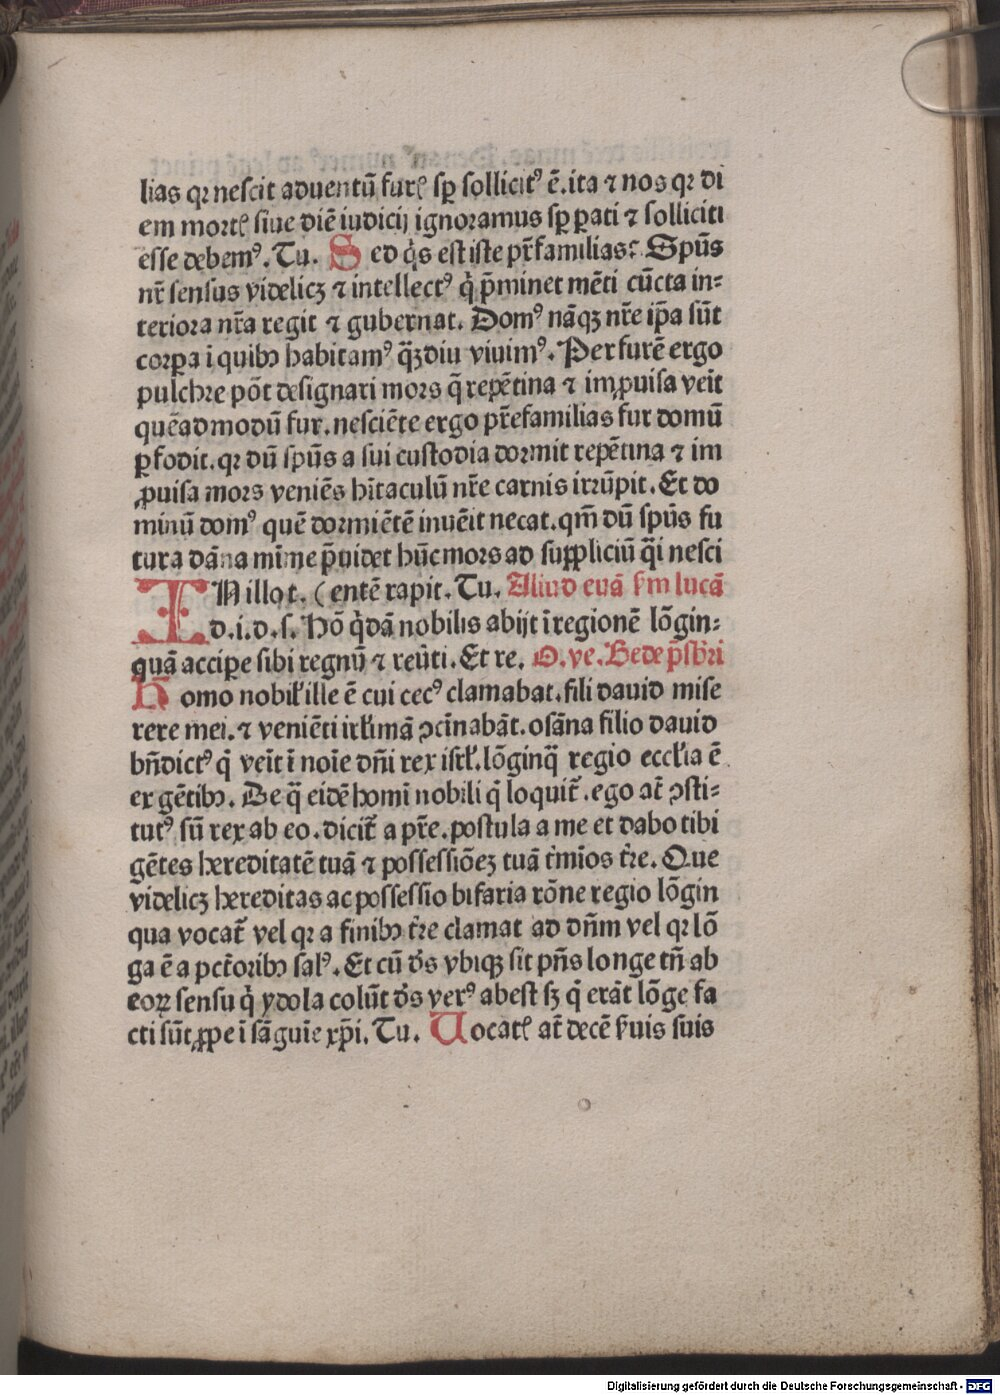 lias qꝛ neſcit aduentū furꝭ ſꝑ ſollicitꝰ ē. ita ⁊ nos qꝛ di
em mortꝭ ſiue diē iudicij ignoramus ſꝑ ꝑati ⁊ ſolliciti
eſſe debemꝰ. Tu. Sed q̇s eſt iſte pr̄familias: Spūs
nr̄ ſenſus videlicꝫ ⁊ intellectꝰ q̇ p̄minet mēti cūcta in⸗
teriora nr̄a regit ⁊ gubernat. Domꝰ nāqꝫ nr̄e ip̄a ſūt
corꝑa i quibꝫ habitamꝰ q̄ꝫdiu viuimꝰ. Per furē ergo
pulchre pōt deſignari mors q̄ repētina ⁊ imꝓuiſa veīt
quēadmodū fur. neſciēte ergo pr̄efamilias fur domū
ꝑfodit. qꝛ dū ſpūs a ſui cuſtodia dormit repētina ⁊ im
ꝓuiſa mors veniēs hītaculū nr̄e carnis irrūpit. Et do
minū domꝰ quē dormiētē inuēit necat. qm̄ dū ſpūs fu
tura dāna mīime p̄uidet hūc mors ad ſuppliciū q̄ſi neſci
IN illo t. (entē rapit. Tu. Aliud euā ẜm lucā
d. i. d. ſ. Hō q̇dā nobilis abijt ī regionē lōgin⸗
quā acciꝑe ſibi regnū ⁊ reūti. Et re. O. ve. Bede p̄ſbr̄i
Homo nobil̓ ille ē cui cecꝰ clamabat. fili dauid miſe
rere mei. ⁊ veniēti irl̓imā ꝯcīnabāt. oſāna filio dauid
bn̄dictꝰ q̇ veīt ī noīe dn̄i rex iſrl̓. lōginq̄ regio eccl̓ia ē
ex gētibꝫ. De q̄ eidē homī nobili q̇ loquit᷑. ego at̄ ꝯſti⸗
tutꝰ ſū rex ab eo. dicit᷑ a pr̄e. poſtula a me et dabo tibi
gētes hereditatē tuā ⁊ poſſeſſiōeꝫ tuā t̄mīos t̄re. Que
videlicꝫ hereditas ac poſſeſſio bifaria rōne regio lōgin
qua vocat᷑ vel qꝛ a finibꝫ t̄re clamat ad dn̄m vel qꝛ lō
ga ē a pctōribꝫ ſalꝰ. Et cū d̄s vbiqꝫ ſit pn̄s longe tn̄ ab
eoꝝ ſenſu q̇ ydola colūt d̄s verꝰ abeſt ſꝫ q̇ erāt lōge fa
cti ſūt ꝓpe ī ſāguīe xp̄i. Tu. Uocatꝭ at̄ decē ẜuis ſuis
Digitalisierung gefördert durch die Deutsche Forschungsgemeinschaft - DFG